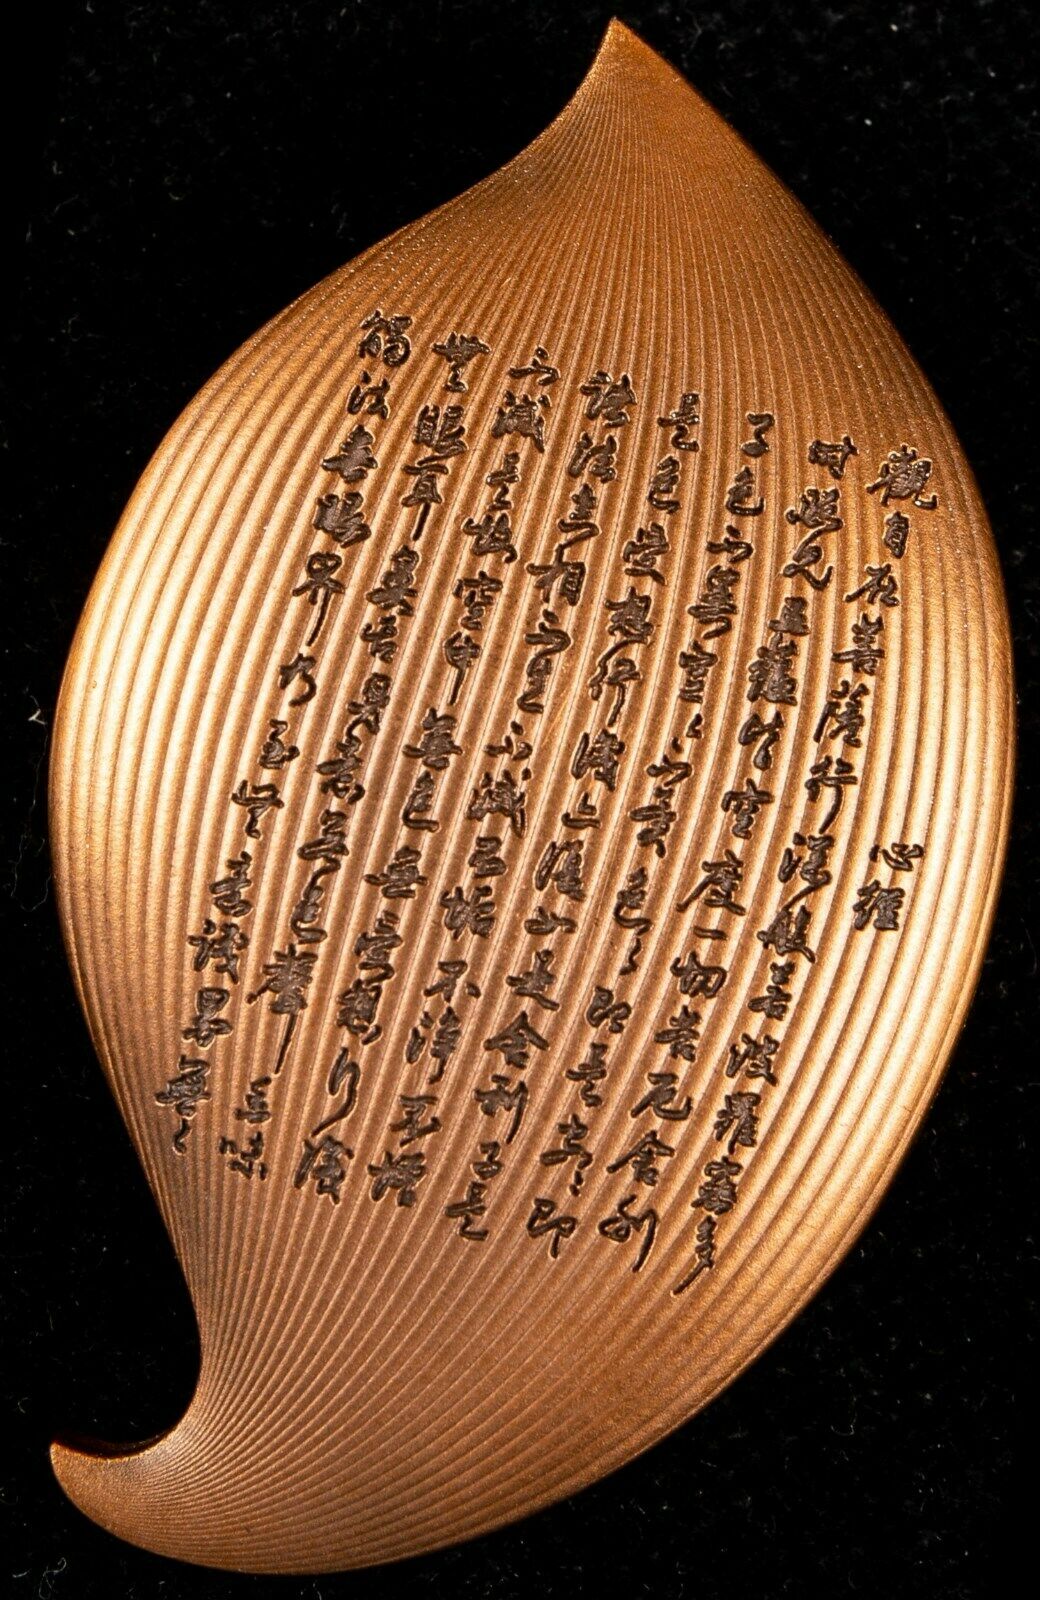 心經
觀自在菩薩行深般若波羅蜜多
時照見五蘊皆空度一切苦厄舍利
子色不異空〻不異色〻即是空〻即
是色受想行識亦復如是舍利子是
諸法空相不生不滅不垢不淨不增
不減是故空中無色無受想行識
無眼耳鼻舌身意無色聲香味
觸法無眼界乃至無意識界無〻